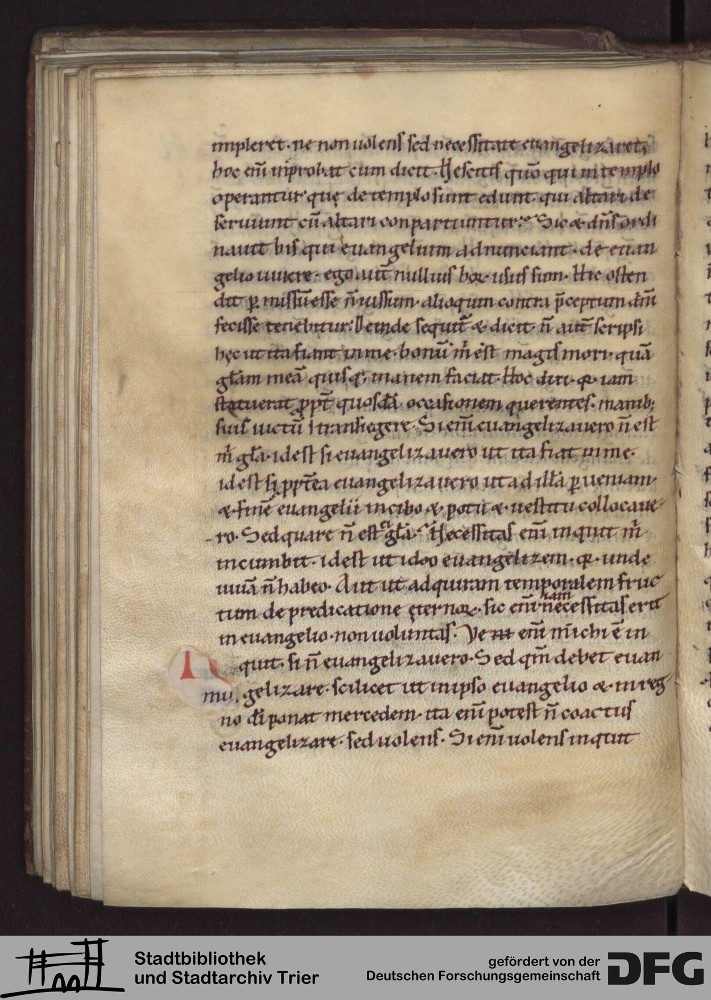 impleret· ne non uolens sed necessitate euangelizaret;
hoc enī inprobat cum dicit· Nescitis quō qui in templo
operantur quę de templo sunt edunt qui altari de
seruiunt cū altari conpartiuntur· Sic & dn̄s ordi
nauit his qui euangelium adnunciant· de euan
gelio uiuere· ego aut̄ nullius hor̄ usus sum· Hic osten
dit p̱missū esse n̄ iussum· alioquin contra p̄ceptum dn̄i
fecisse tenebitur· Deinde sequit̄ & dicit· n̄ aut̄ scripsi
hęc ut ita fiant in me· bonū m̄ est magis mori· quā
gl̄am meā quisq; inanem faciat· Hoc dicit· q̄· iam
statuerat ꝓpt̄ quosdā occasionem querentes· manib;
suis uictū transiegere· Si enī euangelizauero n̄ est
m̄ gl̄a· id est si euangelizauero ut ita fiat in me·
id est si ꝓpt̄ea euangelizauero ut ad illā ꝑueniam·
& finē euangelii in cibo & potu & uestitu collocaue
ro· Sed quare n̄ est gl̄a· Necessitas enī inquit m̄
incumbit· id est ut ideo euangelizem· q̄· unde
uiuā n̄ habeo· Aut ut adquiram temporalem fruc
tum de predicatione ęternor̄· sic enī iam necessitas erit
in euangelio· non uoluntas· Ve enī michi ē in
quit· si n̄ euangelizauero· Sed qm̄ debet euan
gelizare· scilicet ut in ipso euangelio & in reg
no dī ponat mercedem· ita enī potest n̄ coactus
euangelizare· sed uolens· Si enī uolens inquit
Stadtbibliothek
und Stadtarchiv Trier
gefördert von der
Deutschen Forschungsgemeinschaft
DFG